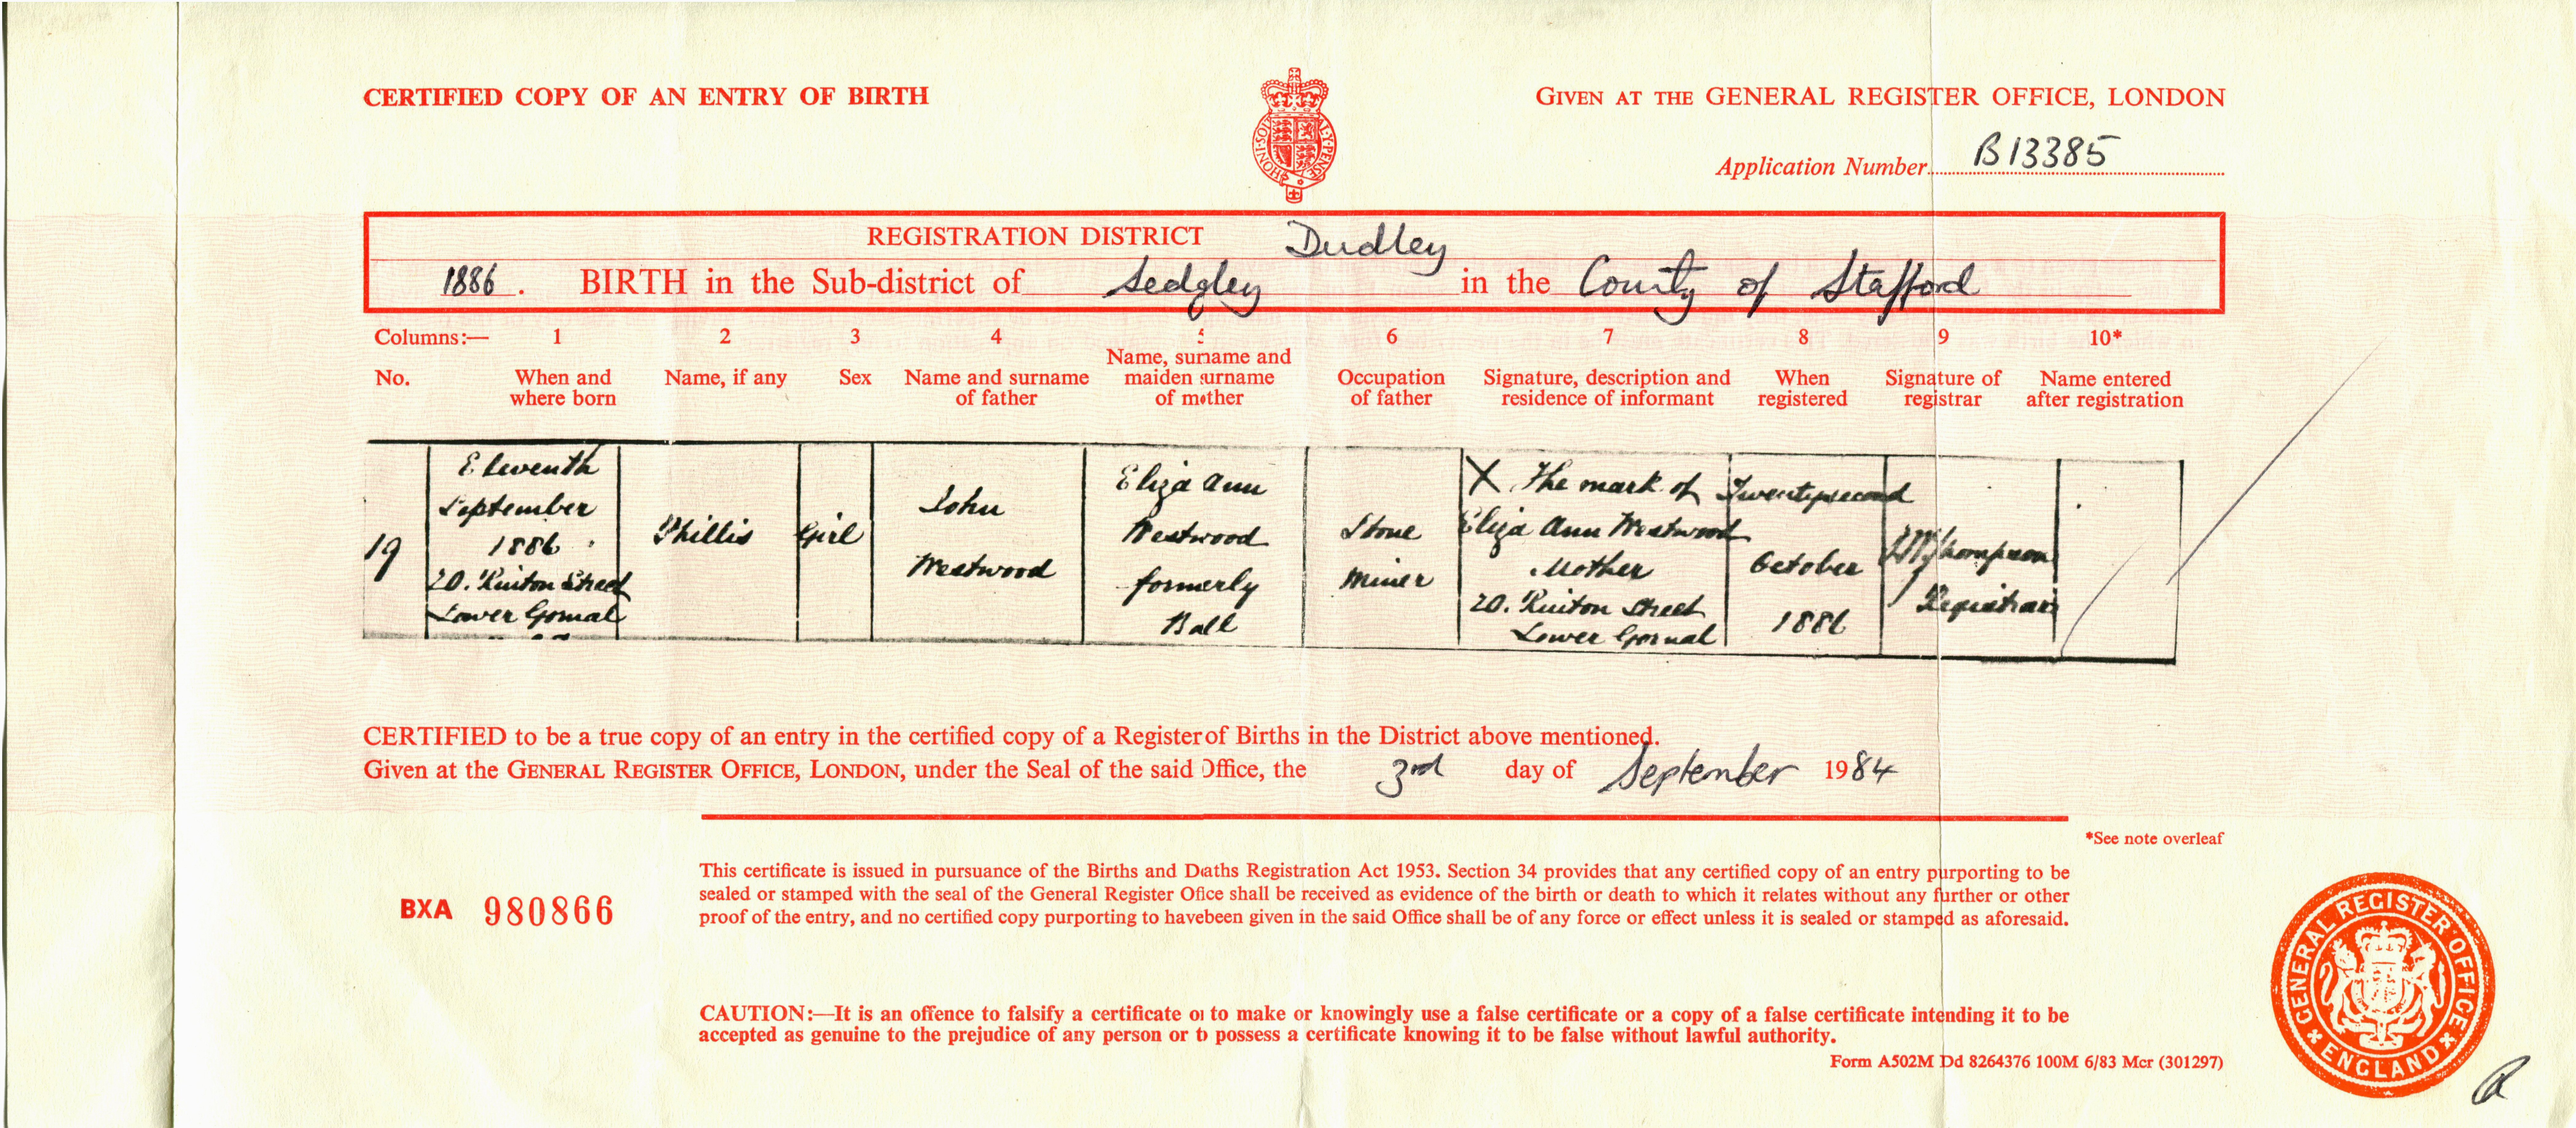 CERTIFIED COPY OF AN ENTRY OF BIRTH
GIVEN AT THE GENERAL REGISTER OFFICE, LONDON
Application Number B13385
REGISTRATION DISTRICT Dudley
1886. BIRTH in the Sub-district of Sedgley in the County of Stafford
Columns:— 1 2 3 4 5 6 7 8 9 10*
No.
When and
where born
Name, if any
Sex
Name and surname
of father
Name, surname and
maiden surname
of mother
Occupation
of father
Signature, description and
residence of informant
When
registered
Signature of
registrar
Name entered
after registration
19
Eleventh
September
1886
20. Ruiton Street
Lower Gornal
Phillis
Girl
John
Westwood
Eliza Ann
Westwood
formerly
Ball
Stone
Miner
X The mark of
Eliza Ann Westwood
Mother
20. Ruiton Street
Lower Gornal
Twentysecond
October
1886
Thompson
Registrar
CERTIFIED to be a true copy of an entry in the certified copy of a Register of Births in the District above mentioned.
Given at the GENERAL REGISTER OFFICE, LONDON, under the Seal of the said Office, the 3rd day of September 1984
*See note overleaf
This certificate is issued in pursuance of the Births and Daths Registration Act 1953. Section 34 provides that any certified copy of an entry purporting to be
sealed or stamped with the seal of the General Register Ofice shall be received as evidence of the birth or death to which it relates without any further or other
proof of the entry, and no certified copy purporting to havebeen given in the said Office shall be of any force or effect unless it is sealed or stamped as aforesaid.
BXA 980866
CAUTION:—It is an offence to falsify a certificate or to make or knowingly use a false certificate or a copy of a false certificate intending it to be
accepted as genuine to the prejudice of any person or to possess a certificate knowing it to be false without lawful authority.
Form A502M Dd 8264376 100M 6/83 Mcr (301297)
GENERAL REGISTER OFFICE
ENGLAND